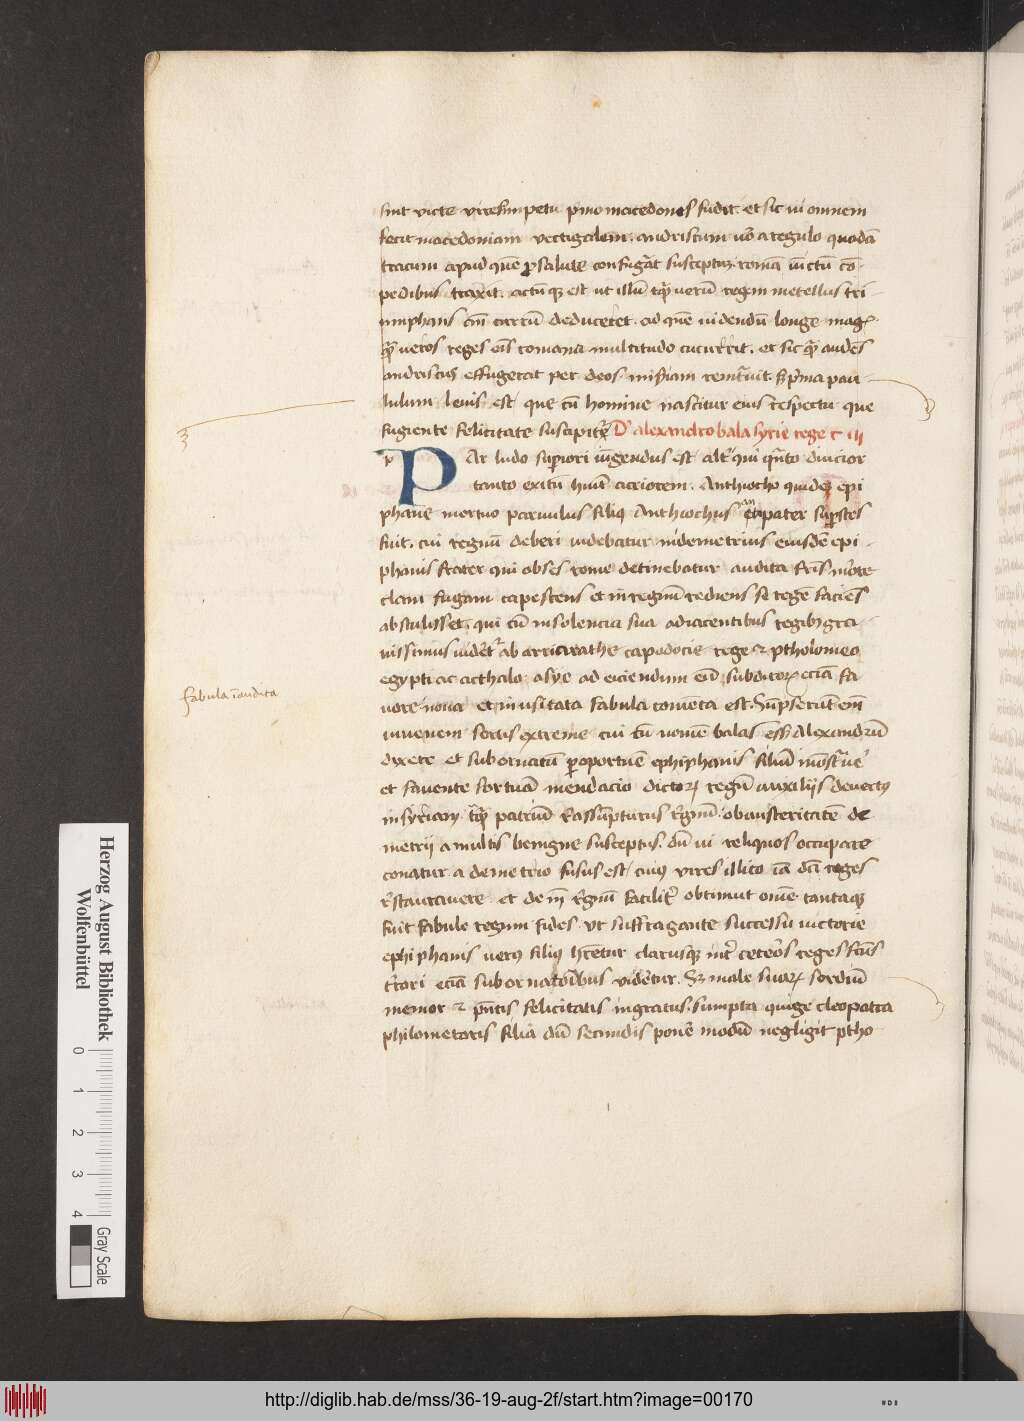 sint victe vires impetu primo macedones fudit. et sic in omnem
fecit macedoniam vectigalem. andriscum uo a regulo quodā
tracum apud quē p salute confugāt susceptū romā iūctū cō-
pedibus traxit. actū qꝫ est ut illū tqꝫ verū regem metellus tri-
umphans añ currū deduceret. ad quē uidendū longe mag
qꝫ veros reges eiꝰ romana multitudo cucurrit. et sic qꝫ audēs
andriscus effugerat per deos
lulum levis est que cū homine nascitur eius respectu que
fugiente felicitate suscipitʳ D' alexandro bala syrie rege c iii
PAr ludo supiori iūgendus est altʳ qui qūto diucior
tanto exitū huit acriorem. Anthiocho quideꝫ epi
phane mortuo parvulus filiꝰ Anthiochus eupater supstes
fuit. cui regnū deberi videbatur ni demetrius eiusdē epi-
phanis frater qui obses rome detinebatur audita frīs mōrte
clam fugam capescens et in regnū rediens se regē faciēs
abstulisset. qui cū insolencia sua adiacentibus regibꝫ gra-
uissimus uidēt ab arriarathe capodocie rege ⁊ ptholomeo
egypti ac atthalo asye ad eiciendum eū subditoꝝ eciā fa
uore nova et inusitata fabula comēta est. Sūpserūt em̄
iuvenem sortis extreme cui cū nomē balas eēt Alexandrū
dixere et subornatū p oportunē ephiphanis filiū mōstrauē
et favente fortunā mendacio dictoꝝ regū auxilijs devectꝰ
in syriam tqꝫ patriū reassūpturus regnū. ob austeritatē de
metrij a multis benigne susceptus. dū ui reliquos occupare
conatur a demetrio fusus est. cuiꝰ vires illico iā dcī reges
restauravere et dein regnū facilitʳ obtinuit oīne tantaqꝫ
fuit fabule regum fides ut suffragante successu victorie
ephiphanis verꝰ filiꝰ hr̄etur clarusqꝫ intʳ ceteros reges
eciā subornatoribus videtur. Sꝫ male suaꝝ sordiū
memor ⁊ pn̄tis felicitatis ingratus. sumpta quige cleopatra
philometoris filia dū secundis ponē modū negligit ptho-
fabula īaudita
Herzog August Bibliothek
Wolfenbüttel
0 1 2 3 4
Gray Scale
http://diglib.hab.de/mss/36-19-aug-2f/start.htm?image=00170